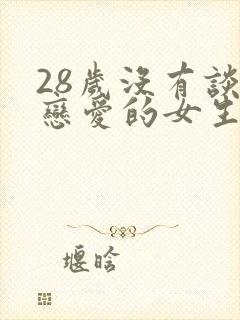 28歲沒有談
戀愛的女生
堰晗